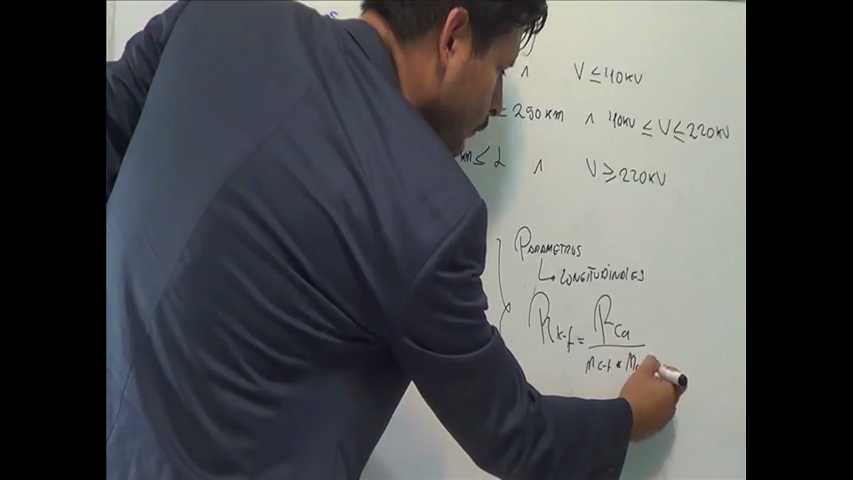 ∧ V ≤ 40KV
≤ 290 KM ∧ 40KV ≤ V ≤ 220KV
KM ≤ L ∧ V ≥ 220KV
PARAMETROS
↳ LONGITUDINALES
R K-f = R Ca